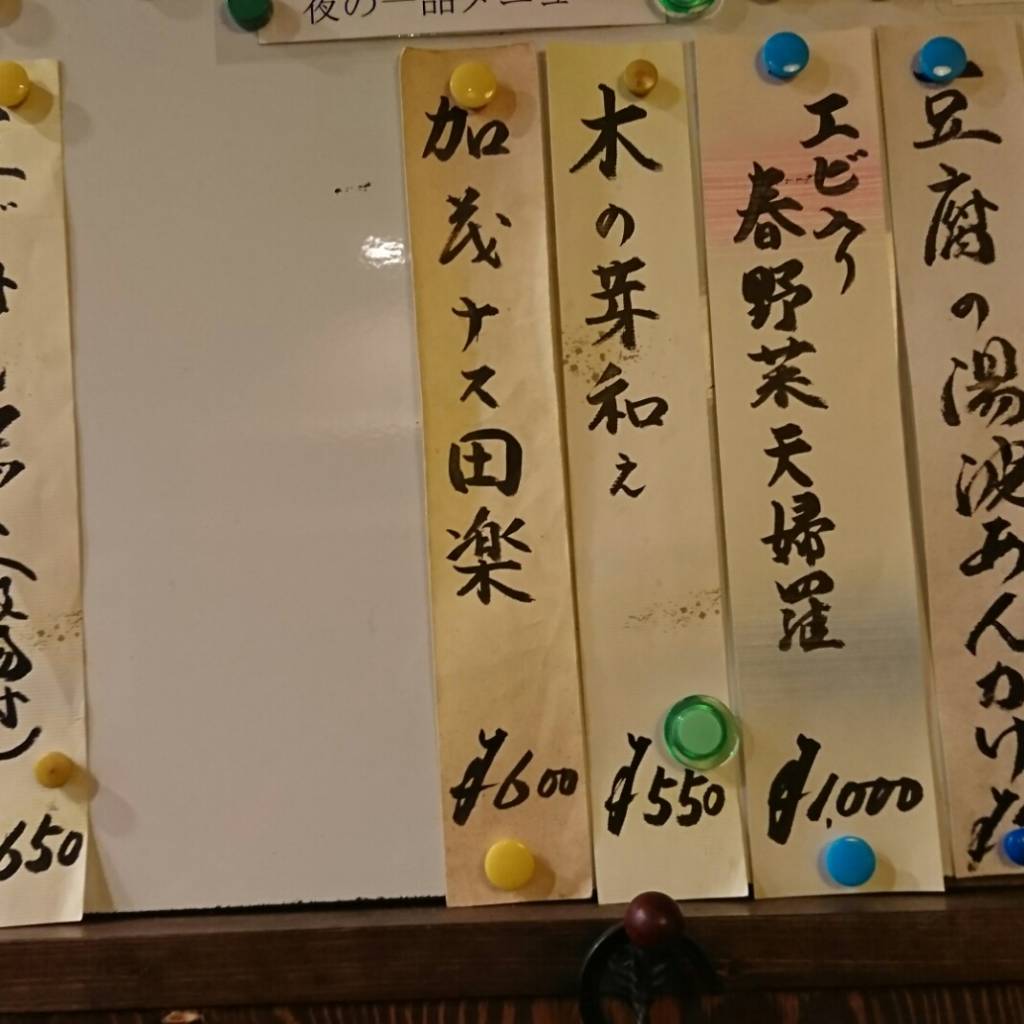 夜の一品メニュー
豆腐の湯波あんかけ
エビ入り
春野菜天婦羅
¥1,000
木の芽和え
¥550
加茂ナス田楽
¥600
650